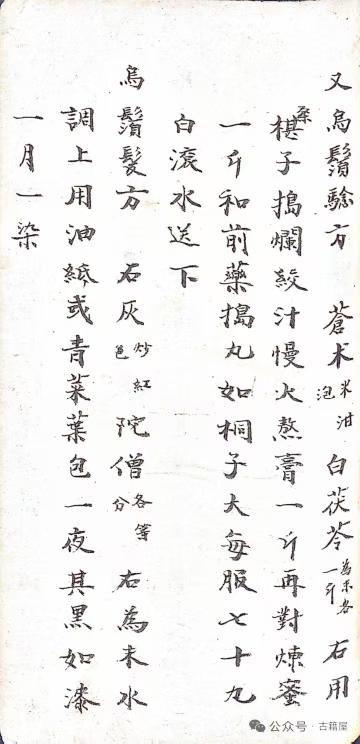 又烏鬚驗方 蒼朮米泔泡 白茯苓為末各一斤 右用
桑椹子搗爛絞汁慢火熬膏一斤再對煉蜜
一斤和前藥搗丸如桐子大每服七十丸
白滾水送下
烏鬚髮方 石灰炒紅色 陀僧各等分 右為末水
調上用油紙或青菜葉包一夜其黑如漆
一月一染
公众号·古籍屋